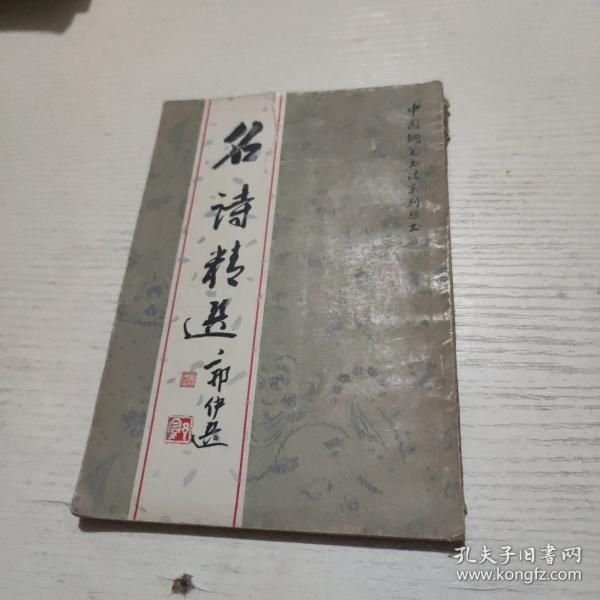 中国钢笔书法系列丛书
名诗精選
郭伊选
孔夫子旧书网
www.kongfz.com